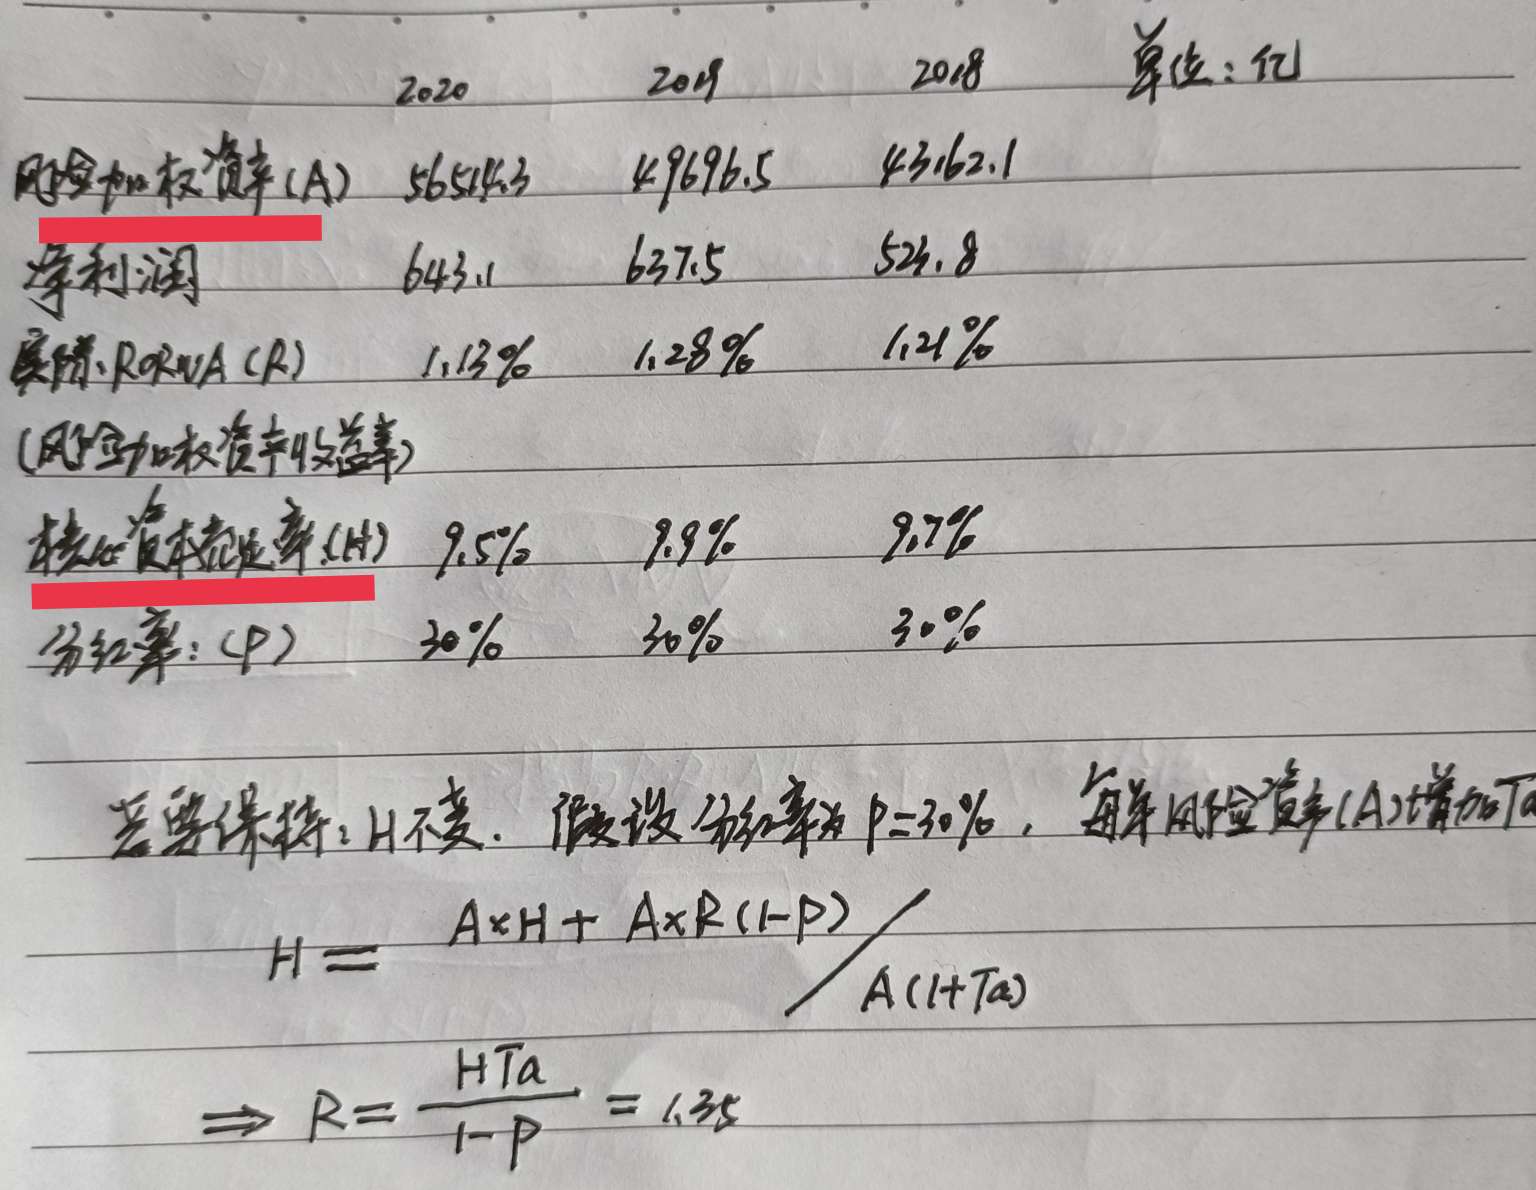 2020 2019 2018 单位：亿
风险加权资产(A) 56514.3 49696.5 43162.1
净利润 643.1 637.5 523.8
实际RORWA(R) 1.13% 1.28% 1.21%
(风险加权资产收益率)
核心资本充足率(H) 9.5% 9.9% 9.7%
分红率：(P) 30% 30% 30%
若要保持：H不变. 假设分红率为P=30%， 每年风险资产(A)增加Ta
H = A×H + A×R(1-P) / A(1+Ta)
⇒ R = HTa / 1-P = 1.35